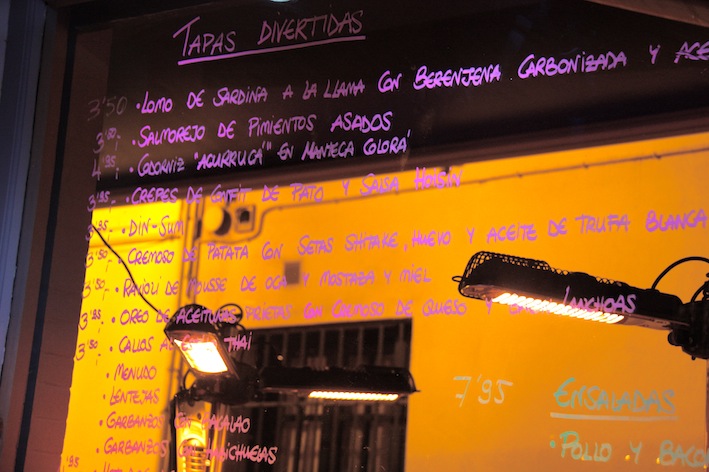 TAPAS DIVERTIDAS
3'50 • LOMO DE SARDINA A LA LLAMA CON BERENJENA CARBONIZADA Y
3'50 • SALMOREJO DE PIMIENTOS ASADOS
4'95 • CODORNIZ "AGURRUCÁ" EN MANTECA COLORÁ
3'95 • CREPES DE CONFIT DE PATO Y SALSA HOISIN
• DIN-SUM
• CREMOSO DE PATATA CON SETAS SHITAKE, HUEVO Y ACEITE DE TRUFA BLANCA
• RAVIOLI DE MOUSSE DE OCA Y MOSTAZA Y MIEL
3'95 • OREO DE ACEITUNAS PRIETAS CON CREMOSO DE QUESO Y
• CALLOS THAI
• MENUDO
• LENTEJAS
• GARBANZOS
• GARBANZOS
7'95 ENSALADAS
• POLLO Y BACON